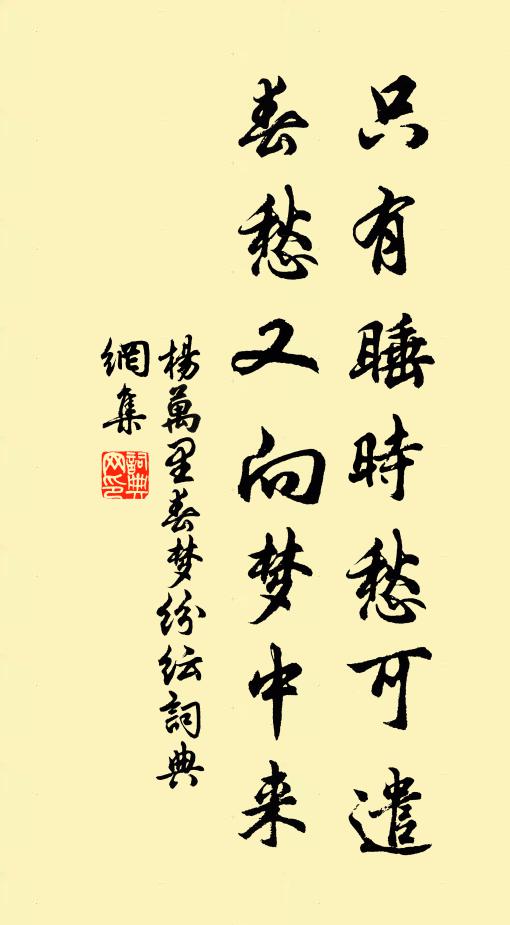 只有睡時愁可遣
春愁又向梦中来
楊萬里春梦纷纭詞典
網集
詞典网印